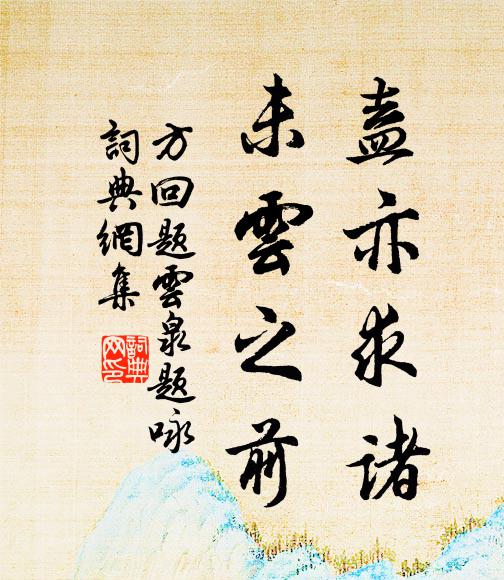 盍亦求諸
未雲之前
方回題雲泉題咏
詞典網集
詞典网印